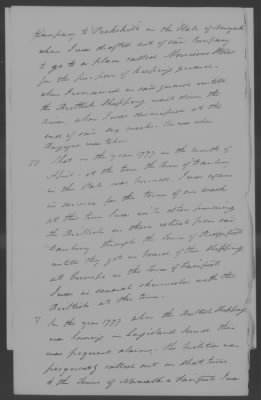 Company to Peekskill in the State of Newyork
when I was drafted out of said Company
to go to a place called
for the purpose of keeping guard.
when I remained on said guard untill
the British Shipping went down the
River, when I was dismissed at the
end of said six weeks.
Burgoyne was taken
That in the year 1777 in the month of
April at the time the Town of Danbury
in this State was burned, I was again
in service for the term of one week
at this time I was in the pursuing
the British on there retreat from said
Danbury through the Town of Ridgefield
untill they got on board of their Shipping
at Compo in the Town of Fairfield
I was in several skirmishes with the
British at this time.
In the year 1777 when the British Shipping
was laying in Longisland Sound there
was frequent alarms. The Militia was
frequently called out on that time
to the Towns of Norwalk & Fairfield I was